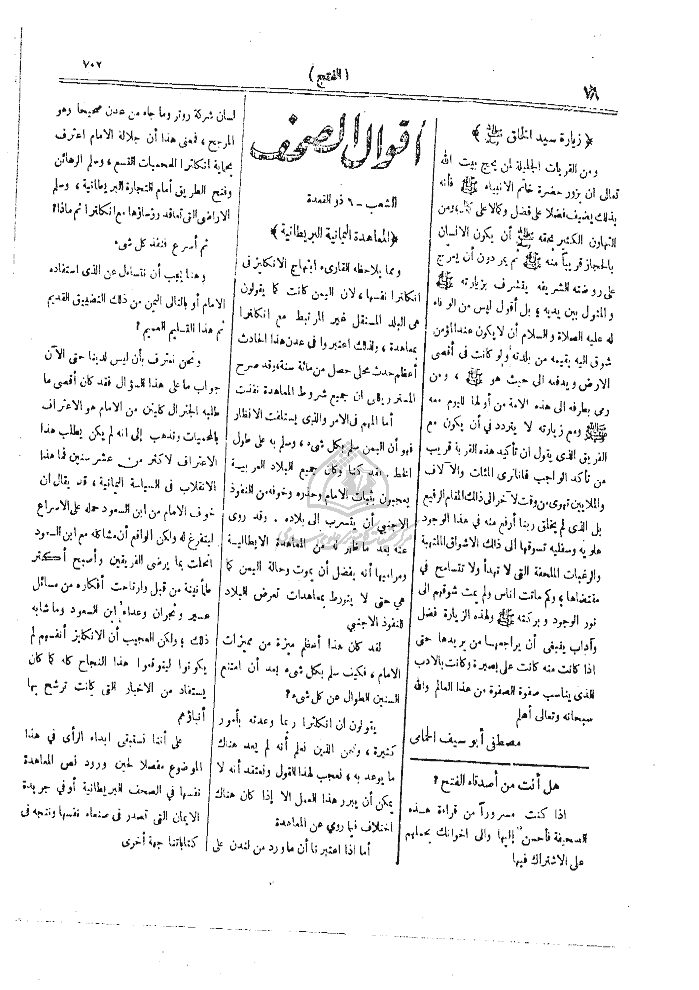 ٧٠٢
( الفتح )
١٨
﴿ زيارة سيد الخلق ﷺ ﴾
ومن القربات الجليلة لمن يحج بيت الله
تعالى ان يزور حضرة خاتم الانبياء ﷺ فأنه
بذلك يضيف فضلا على فضل وكمالا على كمال، ومن
التهاون الكثير بحقه ﷺ أن يكون الانسان
بالحجاز قريباً منه ﷺ ثم يرد دون أن يعرج
على روضته الشريفة يتشرف بزيارته ﷺ
والمثول بين يديه ؛ بل أقول ليس من الوفاء
له عليه الصلاة والسلام أن لا يكون عند المؤمن
شوق اليه يقيمه من بلدته ولو كانت في أقصى
الارض ويدفعه الى حيث هو ﷺ ، ومن
رمى بطرفه الى هذه الامة من أولها لليوم معه
ﷺ ومع زيارته لا يتردد في أن يكون مع
الفريق الذى يقول ان تأكيد هذه القربة قريب
من تأكد الواجب فانا نرى المئات والآلاف
والملايين تهوى من وقت لآخر الى ذلك المقام الرفيع
بل الذى لم يخلق ربنا أرفع منه في هذا الوجود
علويه وسفليه تسوقها الى ذلك الاشواق الملتهبة
والرغبات الملحفة التى لا تهدأ ولا تتسامح في
مقتضاها ؛ وكم ماتت اناس ولم يمت شوقهم الى
نور الوجود وبركته ﷺ ولهذه الزيارة فضل
وآداب ينبغى أن يراجعها من يريدها حتى
اذا كانت منه كانت على بصيرة وكانت بالادب
الذى يناسب صفوة الصفوة من هذا العالم والله
سبحانه وتعالى أعلم
مصطفى أبو سيف الحمامى
هل أنت من أصدقاء الفتح ؟
اذا كنت مسروراً من قراءة هذه
الصحيفة فأحسن إليها والى اخوانك بحملهم
على الاشتراك فيها
أقوال الصحف
الشعب — ٦ ذو القعدة
﴿ المعاهدة اليمانية البريطانية ﴾
ومما يلاحظه القارىء ابتهاج الانكليز في
انكلترا نفسها ، لان اليمن كانت كما يقولون
هي البلد المستقل غير المرتبط مع انكلترا
بمعاهدة ، ولذلك اعتبروا في عدن هذا الحادث
أعظم حدث محلى حصل من مائة سنة، وقد صرح
المستر ريلى ان جميع شروط المعاهدة نفذت
أما المهم في الامر والذى يستلفت الانظار
فهو أن اليمن سلم بكل شىء ، وسلم به على طول
الخط . لقد كنا وكان جميع البلاد العربية
معجبون بثبات الامام وحذره وخوفه من النفوذ
الاجنبي أن يتسرب الى بلاده . وقد روى
عنه بعد ما ظهر له من المعاهدة الايطالية
ومراميها أنه يفضل أن يموت وحالة اليمن كما
هي حتى لا يتورط بمعاهدات تعرض البلاد
للنفوذ الاجنبي
لقد كان هذا أعظم ميزة من مميزات
الامام ، فكيف سلم بكل شىء بعد أن امتنع
السنين الطوال عن كل شىء ؟
يقولون ان انكلترا ربما وعدته بأمور
كثيرة ، ونحن الذين نعلم أنه لم يعد هناك
ما يوعد به ، نعجب لهذا القول ونعتقد أنه لا
يمكن أن يبرر هذا العمل الا إذا كان هناك
اختلاف فيما روي عن المعاهدة
أما اذا اعتبرنا أن ما ورد من لندن على
لسان شركة روتر وما جاء من عدن صحيحا وهو
المرجح ، فمعنى هذا أن جلالة الامام اعترف
بحماية انكلترا للمحميات التسع ، وسلم الرهائن
وفتح الطريق أمام التجارة البريطانية ، وسلم
الاراضى التى تعاقد رؤساؤها مع انكلترا ثم ماذا؟
ثم أسرع فنفذ كل شىء
وهنا يجب أن نتساءل عن الذى استفاده
الامام أو بالتالى اليمن من ذلك التضييق القديم
ثم هذا التسليم العميم ؟
ونحن نعترف بأن ليس لدينا حتى الآن
جواب ما على هذا السؤال فقد كان أقصى ما
طلبه الجنرال كليتن من الامام هو الاعتراف
بالمحميات ونذهب إلى انه لم يكن يطلب هذا
الاعتراف لاكثر من عشر سنين فما هذا
الانقلاب في السياسة اليمانية ، قد يقال ان
خوف الامام من ابن السعود حمله على الاسراع
ليتفرغ له ولكن الواقع أن مشاكله مع ابن السعود
انحلت بما يرضى الفريقين وأصبح أكثر
طمأنينة من قبل وارتاحت أفكاره من مسائل
عسير ونجران وعداء ابن السعود وما شابه
ذلك ؛ ولكن العجيب أن الانكليز أنفسهم لم
يكونوا ليتوقعوا هذا النجاح كله كما كان
يستفاد من الاخبار التى كانت ترشح بها
أنباؤهم
على أننا نستبقى ابداء الرأى في هذا
الموضوع مفصلا لحين ورود نص المعاهدة
نفسها في الصحف البريطانية أو في جريدة
الايمان التى تصدر فى صنعاء نفسها ونتجه فى
كتاباتنا جهة أخرى